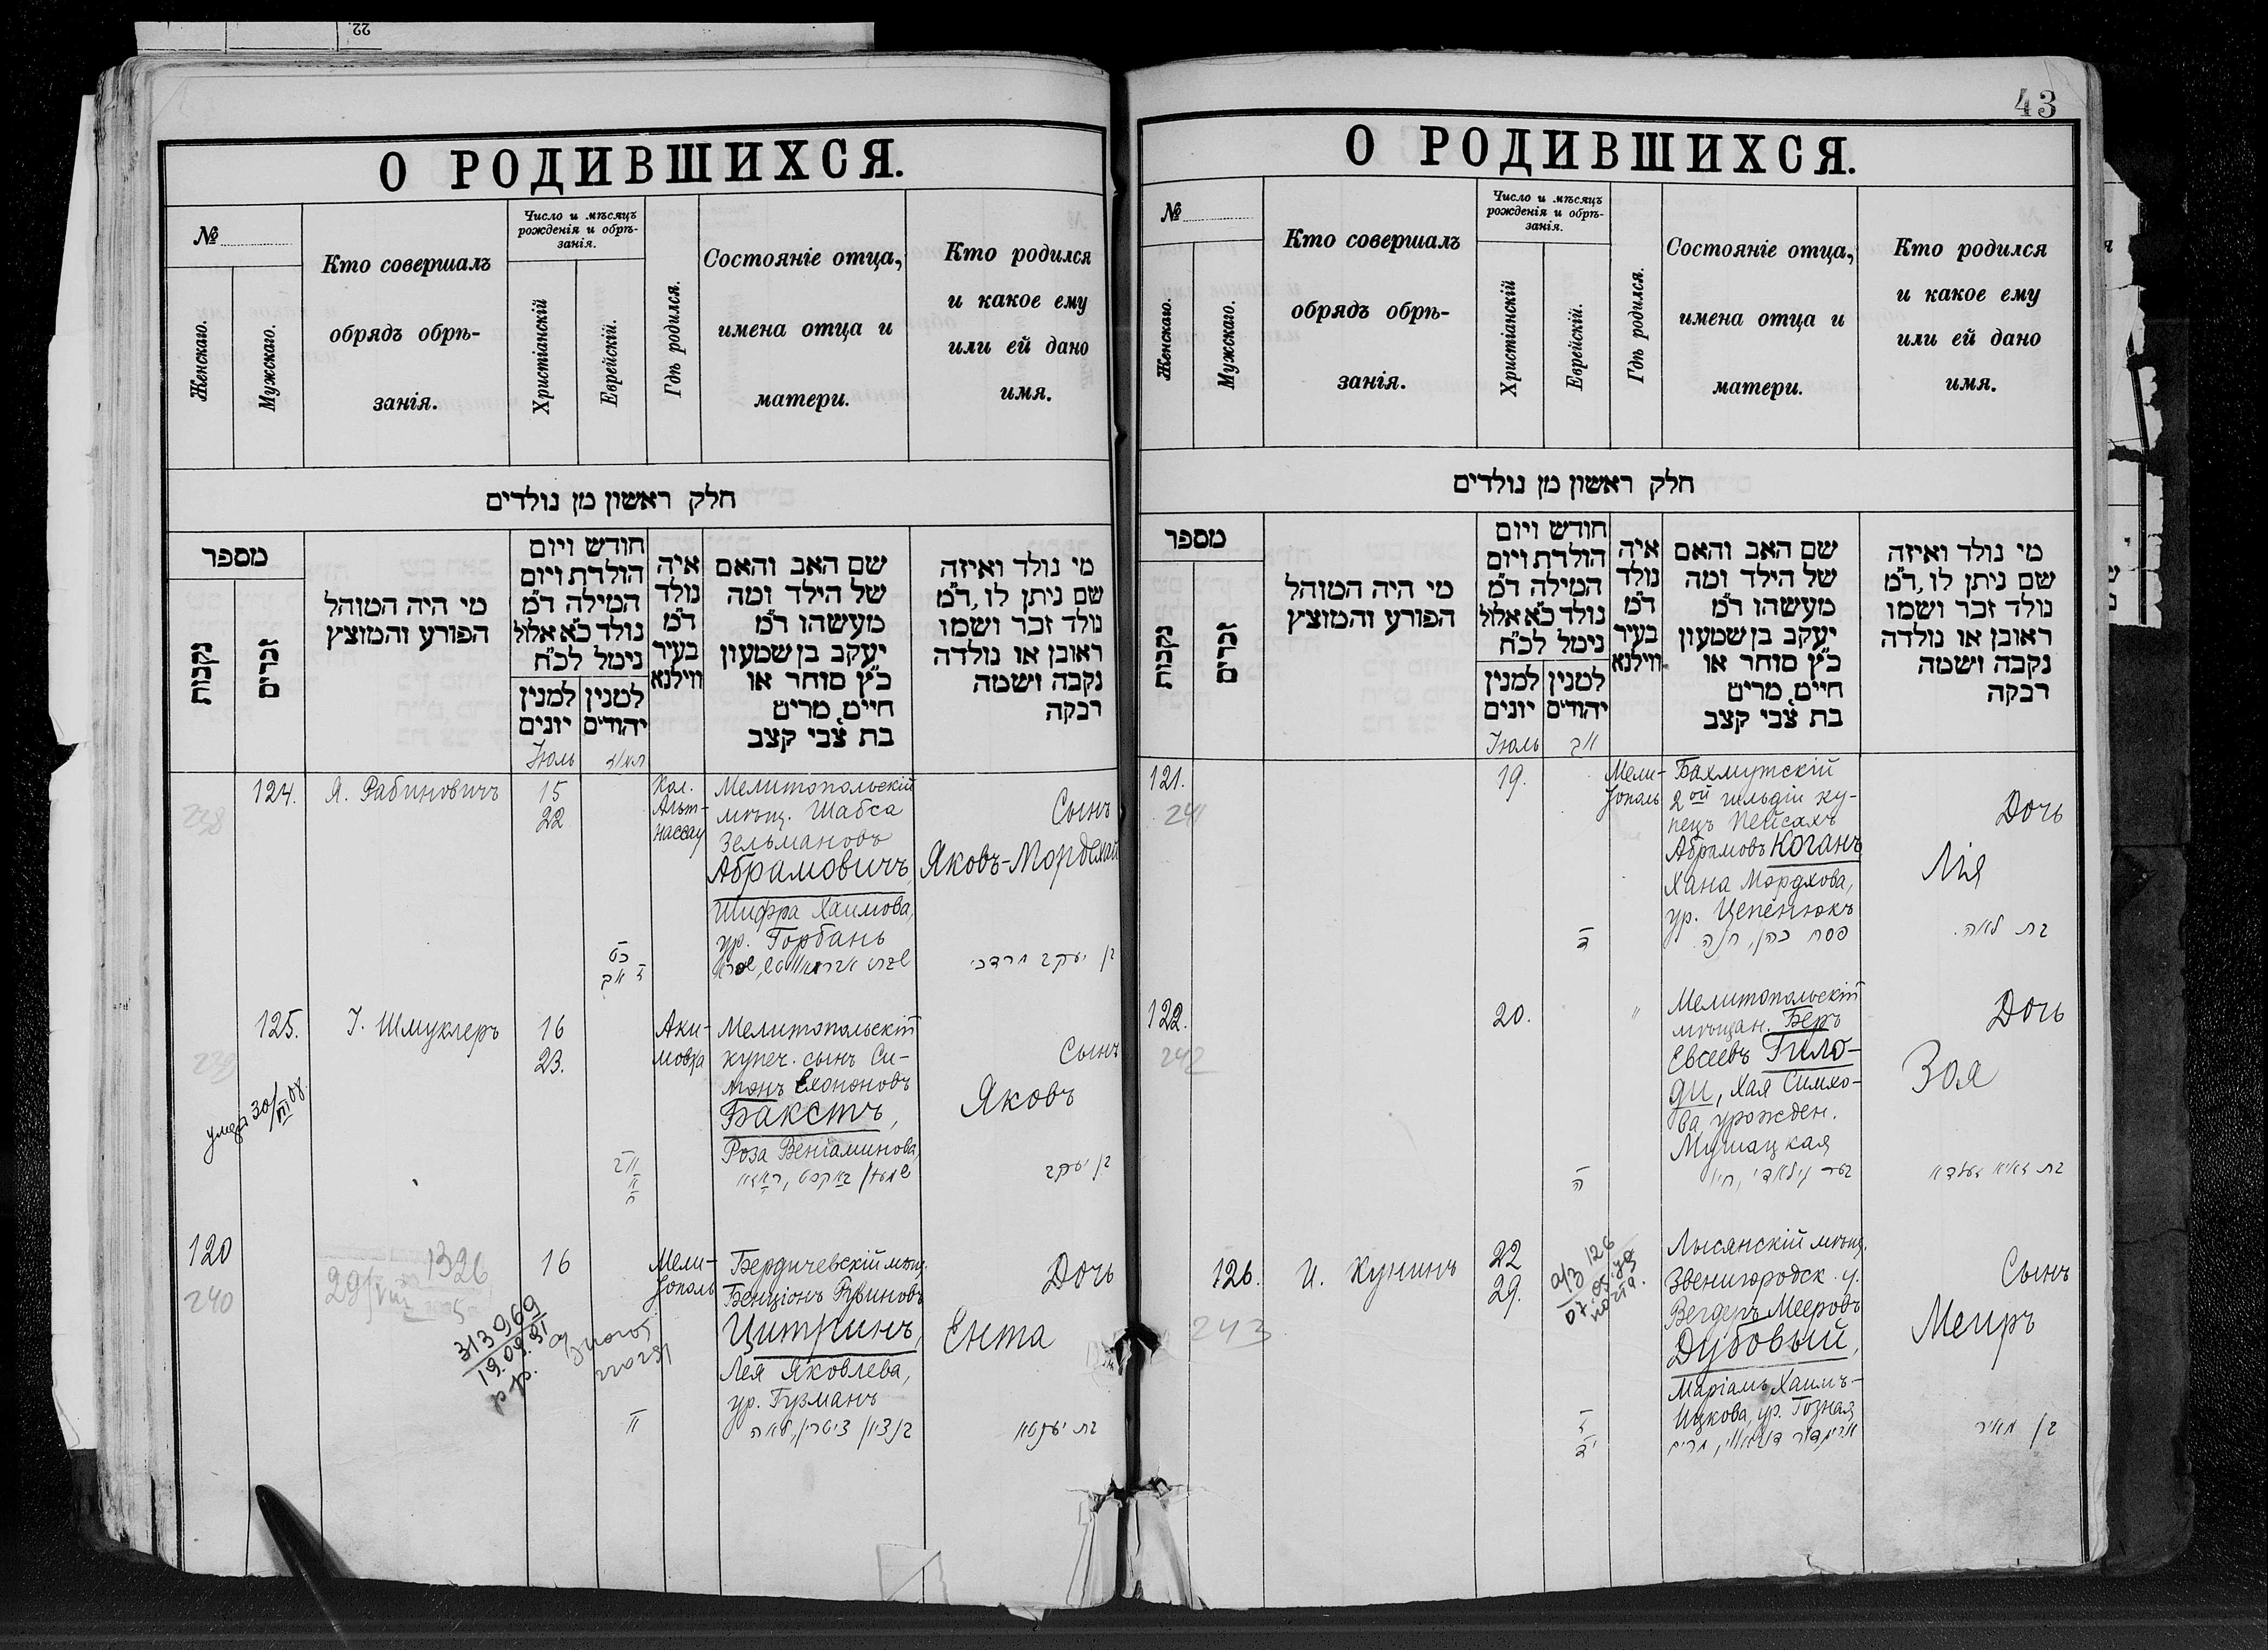 22
О РОДИВШИХСЯ.
№
Женскаго.
Мужскаго.
Кто совершалъ
обрядъ обрѣ-
занія.
Число и мѣсяцъ
рожденія и обрѣ-
занія.
Христіанскій
Еврейскій.
Гдѣ родился.
Состояніе отца,
имена отца и
матери.
Кто родился
и какое ему
или ей дано
имя.
חלק ראשון מן נולדים
מספר
נקבות
זכרים
מי היה המוהל
הפורע והמוצץ
חודש ויום
הולדת ויום
המילה ד״מ
נולד כ״א אלול
נימל לכ״ח
למנין
יונים
למנין
יהודים
איה
נולד
ד״מ
בעיר
ווילנא
שם האב והאם
של הילד ומה
מעשהו ד״מ
יעקב בן שמעון
כ״ץ סוחר או
חיים, מרים
בת צבי קצב
מי נולד ואיזה
שם ניתן לו, ד״מ
נולד זכר ושמו
ראובן או נולדה
נקבה ושמה
רבקה
Іюль
תמוז
124.
238
Я. Рабиновичъ
15
22
Кол.
Альт-
нассау
Мелитопольскій
мѣщ. Шабса
Зельмановъ
Абрамовичъ,
Шифра Хаимова,
ур. Горбань
Сынъ
Яковъ-Мордехай
כט
ז אב
בן יעקב מרדכי
125.
239
умеръ 30/VII 08
І. Шмуклеръ
16
23.
Аки-
мовка
Мелитопольскій
купеч. сынъ Си-
монъ Ехононовъ
Бакстъ,
Роза Веніаминова
Сынъ
Яковъ
בן יעקב
120
240
1326
313969
19.09.91
16
Мели-
тополь
Бердичевскій мѣщ.
Бенціонъ Рувиновъ
Цитринъ,
Лея Яковлева,
ур. Гузманъ
בן ציון ציטרין, לאה
Дочь
Ента
בת יענטא
43
О РОДИВШИХСЯ.
№
Женскаго.
Мужскаго.
Кто совершалъ
обрядъ обрѣ-
занія.
Число и мѣсяцъ
рожденія и обрѣ-
занія.
Христіанскій
Еврейскій.
Гдѣ родился.
Состояніе отца,
имена отца и
матери.
Кто родился
и какое ему
или ей дано
имя.
חלק ראשון מן נולדים
מספר
נקבות
זכרים
מי היה המוהל
הפורע והמוצץ
חודש ויום
הולדת ויום
המילה ד״מ
נולד כ״א אלול
נימל לכ״ח
למנין
יונים
למנין
יהודים
איה
נולד
ד״מ
בעיר
ווילנא
שם האב והאם
של הילד ומה
מעשהו ד״מ
יעקב בן שמעון
כ״ץ סוחר או
חיים, מרים
בת צבי קצב
מי נולד ואיזה
שם ניתן לו, ד״מ
נולד זכר ושמו
ראובן או נולדה
נקבה ושמה
רבקה
Іюль
אב
121.
241
19.
Мели-
тополь
Бахмутскій
2ой гильдіи ку-
пецъ Пейсахъ
Абрамовъ Коганъ
Хана Мордхова,
ур. Цепенюкъ
פסח כהן, חנה
Дочь
Лія
ד
בת לאה.
122.
242
20.
"
Мелитопольскій
мѣщан. Беръ
Евсеевъ Гило-
ди, Хая Симхо-
ва, урожден.
Мушацкая
Дочь
Зоя
ה
126.
243
И. Кунинъ
22
29.
Лысянскій мѣщ.
Звенигородск. у.
Вегдеръ Мееровъ
Дубовый,
Маріамъ Хаимъ-
Ицкова, ур. Гозная
Сынъ
Меиръ
ז
יד
בן מאיר